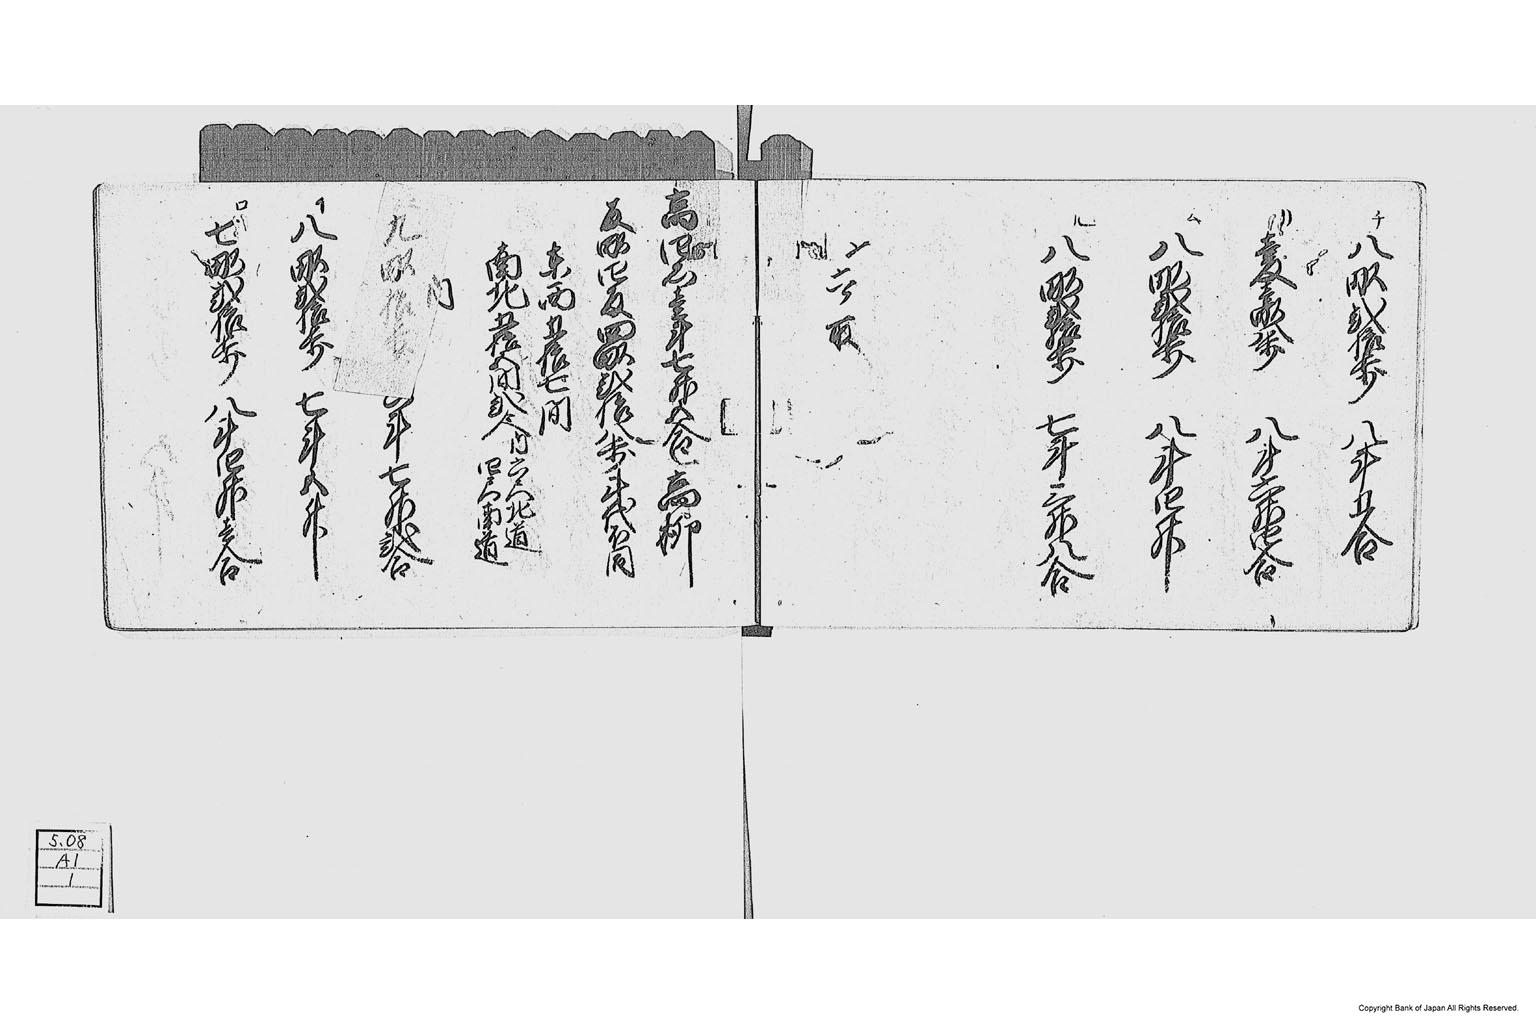 チ
八畝弐拾歩 八斗五合
リ
壱反壱畝歩 八斗六升四合
ム
八畝弐拾歩 八斗四升
ル
八畝弐拾歩 七斗三升八合
〆六反
高四石壱斗七升五合 高柳
反畝四反四畝弐拾八歩
東西 五拾七間
南北 五拾
内六尺北道
四尺南道
内
九畝拾歩
七升弐合
イ
八畝弐拾歩 七斗五升
ロ
七畝弐拾歩 八斗四升壱合
5.08
A1
1
Copyright Bank of Japan All Rights Reserved.